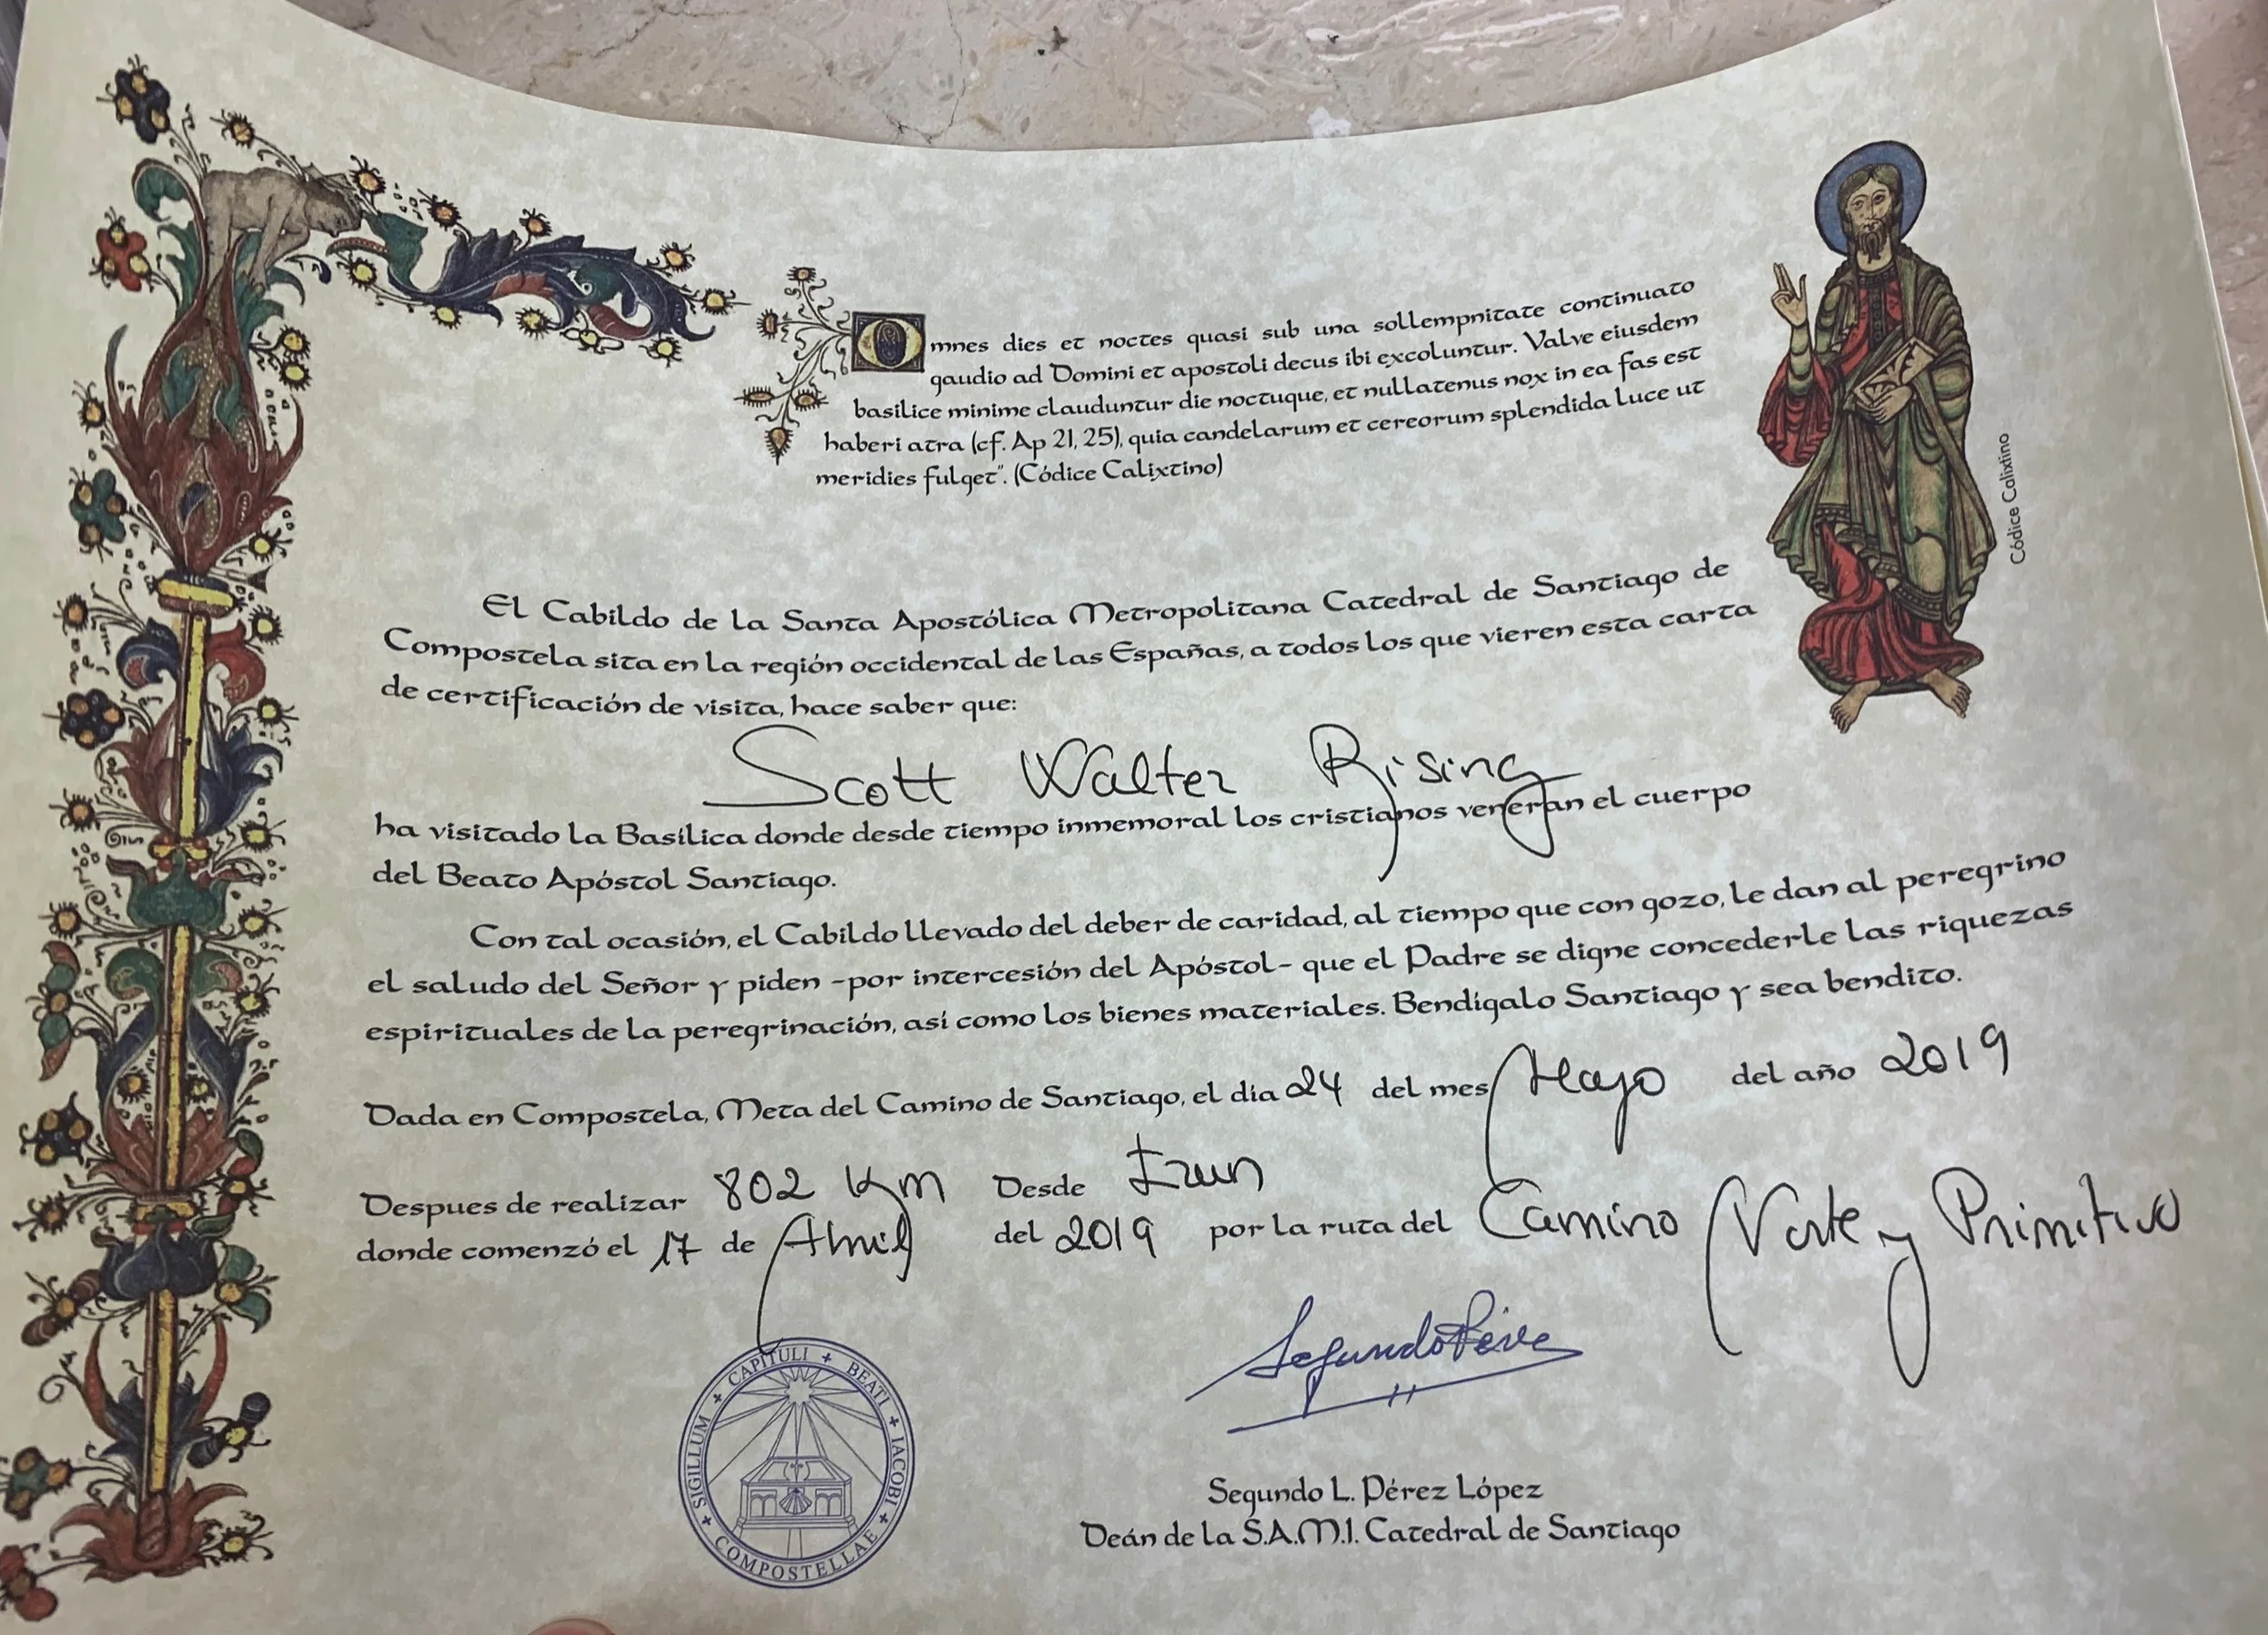 Omnes dies et noctes quasi sub una sollempnitate continuato
gaudio ad Domini et apostoli decus ibi excoluntur. Valve eiusdem
basilice minime clauduntur die noctuque, et nullatenus nox in ea fas est
haberi atra (cf. Ap 21, 25), quia candelarum et cereorum splendida luce ut
meridies fulget". (Códice Calixtino)
Códice Calixtino
El Cabildo de la Santa Apostólica Metropolitana Catedral de Santiago de
Compostela sita en la región occidental de las Españas, a todos los que vieren esta carta
de certificación de visita, hace saber que:
Scott Walter Rising
ha visitado la Basílica donde desde tiempo inmemoral los cristianos veneran el cuerpo
del Beato Apóstol Santiago.
Con tal ocasión, el Cabildo llevado del deber de caridad, al tiempo que con gozo, le dan al peregrino
el saludo del Señor y piden -por intercesión del Apóstol- que el Padre se digne concederle las riquezas
espirituales de la peregrinación, así como los bienes materiales. Bendígalo Santiago y sea bendito.
Dada en Compostela, Meta del Camino de Santiago, el día 24 del mes Mayo del año 2019
Despues de realizar 802 Km Desde Irun
donde comenzó el 17 de Abril del 2019 por la ruta del Camino Norte y Primitivo
SIGILLUM + CAPITULI + BEATI + IACOBI + COMPOSTELLAE +
Segundo Pérez
Segundo L. Pérez López
Deán de la S.A.M.I. Catedral de Santiago